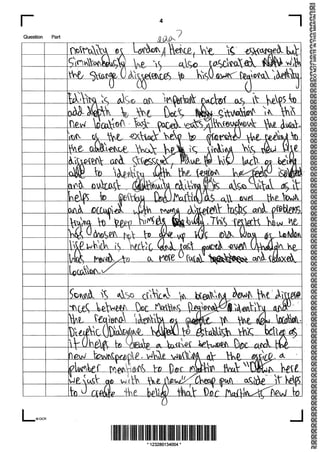 4
Question Part
normality of London. Hence, he is estranged but
Simultaneously he is also fascinated with
the strange differences to his own regional identity.
Editing is also an important factor as it helps to
add depth to the Doc's new situation in this
new location fast paced edits throughout the durat-
ion of the extract help to promote the feeling to
the audience that he is finding his new life
different and stressful due to his lack of being
able to identify with the region he feels isolated
and outcast. Continuity editing is also vital as it
helps to portray Doc Martin as all over the town
and occupied with many different tasks and problems
trying to keep himself busy. This reflects how he
has chosen not to give up his old way of London
life which is hectic and fast paced even though he
has moved to a more rural and relaxed
location
Sound is also critical in breaking down the differe-
nces between Doc Martins Regional identity and
the regional identity of people in the new location.
Diegetic Dialogue helped to establish this belief as
it helps to create a barrier between Doc and the
new townspeople. while working at the office a
plumber mentions to Doc Martin that "Down here
we just go with the flow". Cheap pun aside it helps
to create the belief that Doc Martin is new to